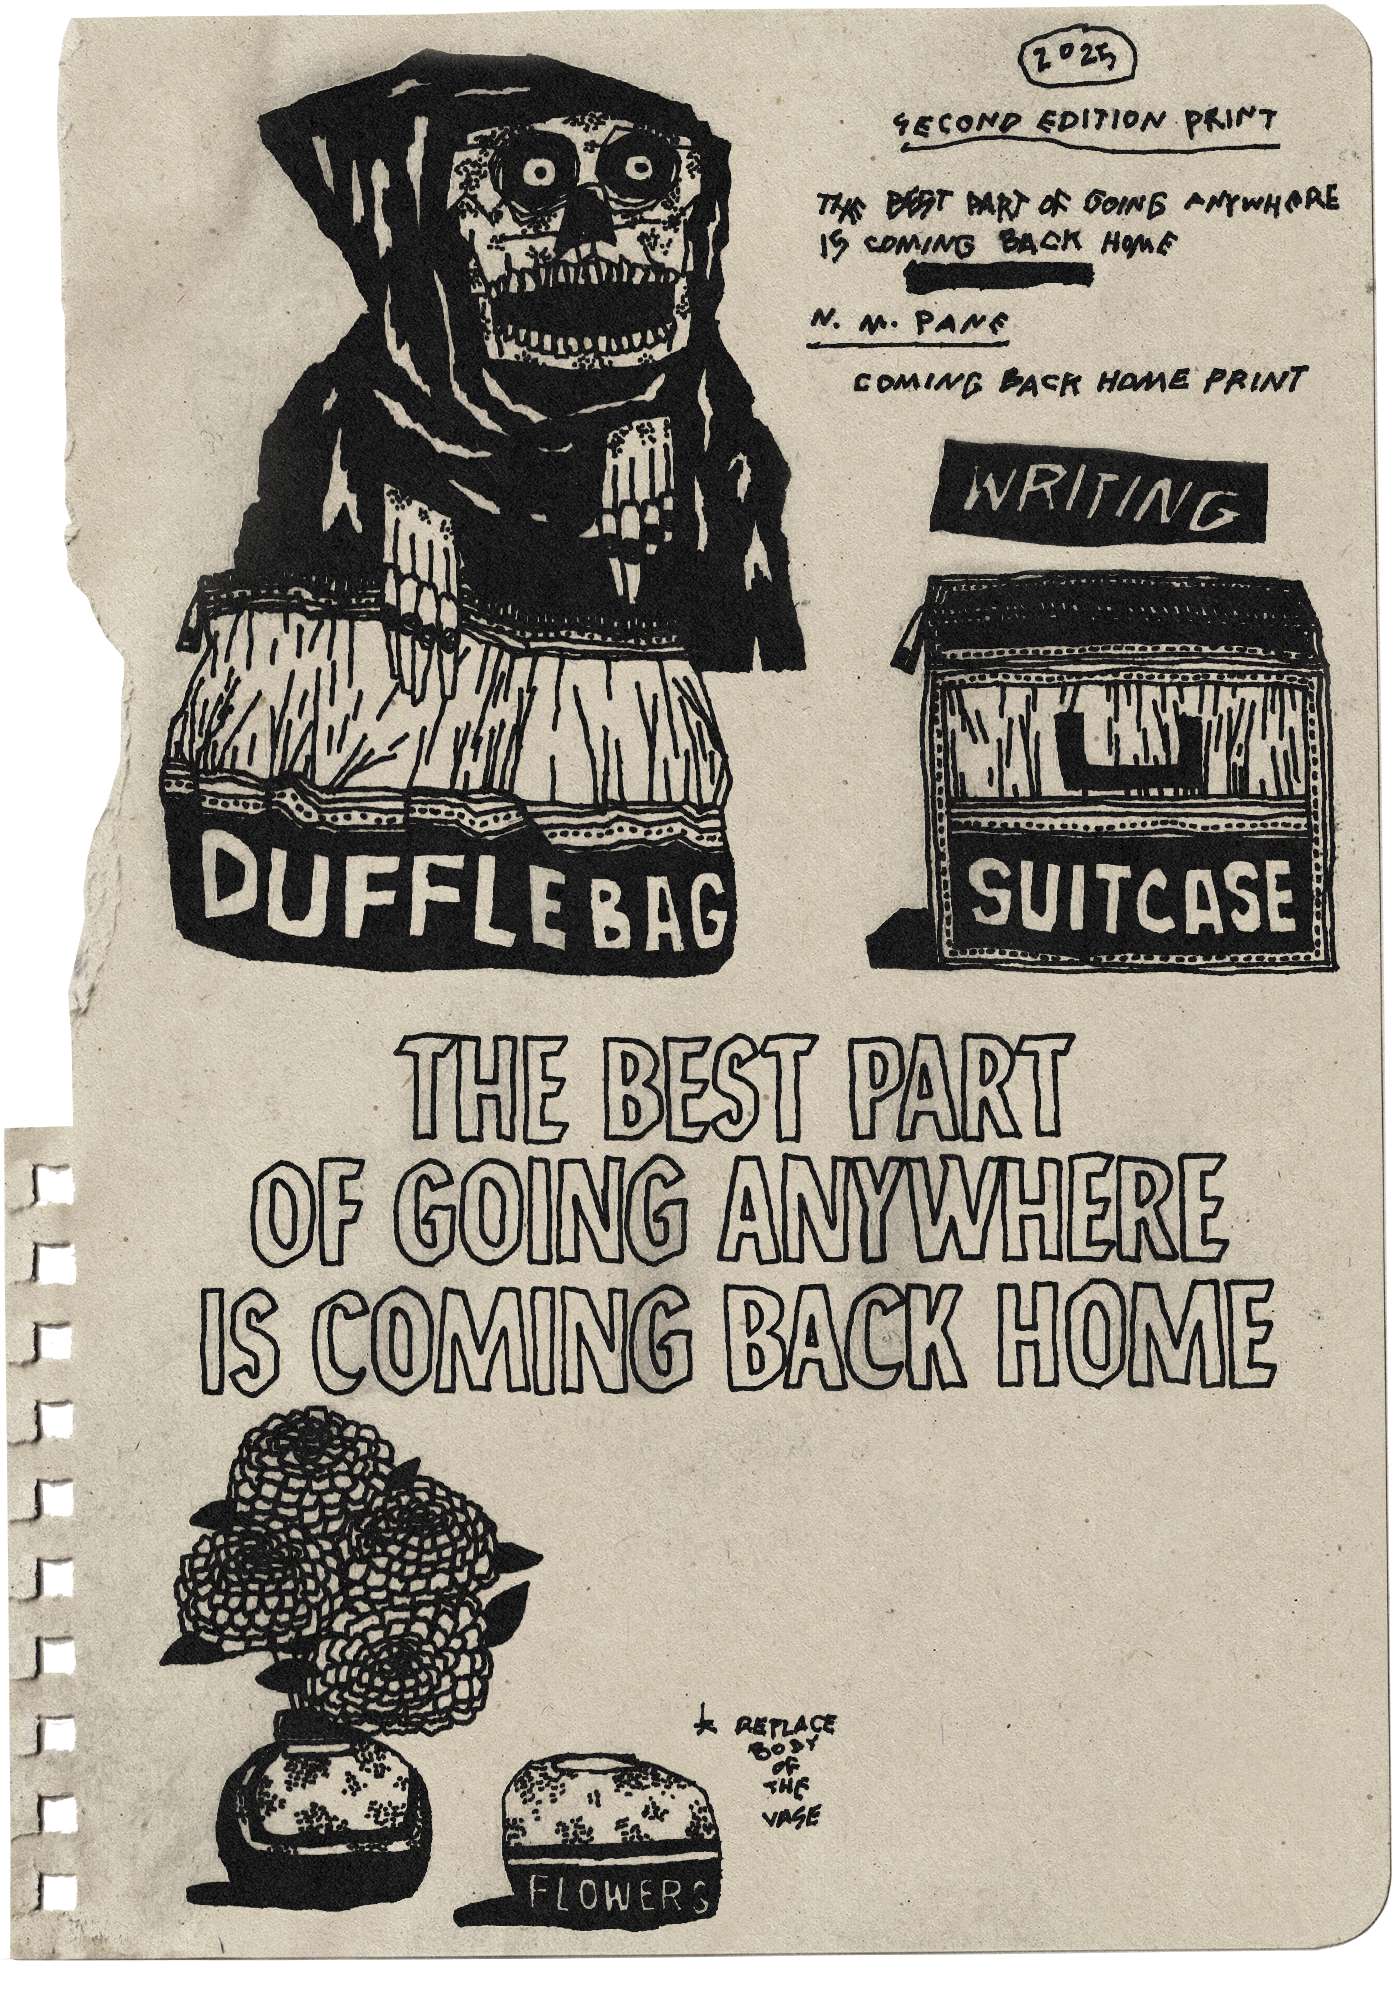 2025
SECOND EDITION PRINT
THE BEST PART OF GOING ANYWHERE
IS COMING BACK HOME
N. M. PANE
COMING BACK HOME PRINT
WRITING
DUFFLE BAG
SUITCASE
THE BEST PART
OF GOING ANYWHERE
IS COMING BACK HOME
REPLACE
BODY
OF
THE
VASE
FLOWERS